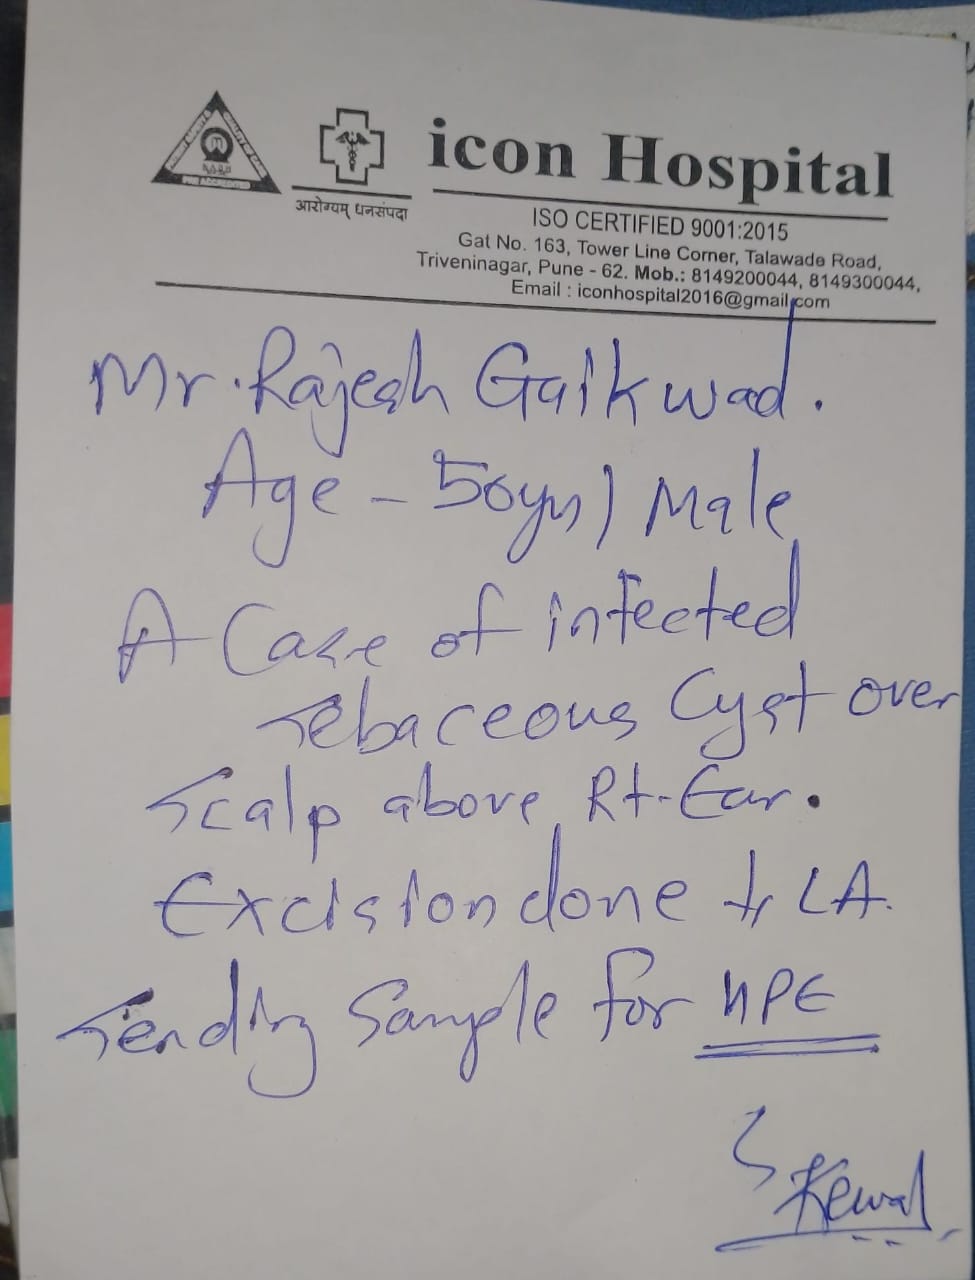 PRE ACCREDITED
आरोग्यम् धनसंपदा
icon Hospital
ISO CERTIFIED 9001:2015
Gat No. 163, Tower Line Corner, Talawade Road,
Triveninagar, Pune - 62. Mob.: 8149200044, 8149300044,
Email : iconhospital2016@gmail.com
Mr. Rajesh Gaikwad.
Age - 50yrs / Male
A Case of infected
sebaceous Cyst over
Scalp above Rt. Ear.
Excision done LA.
Sending Sample for HPE
Kewal